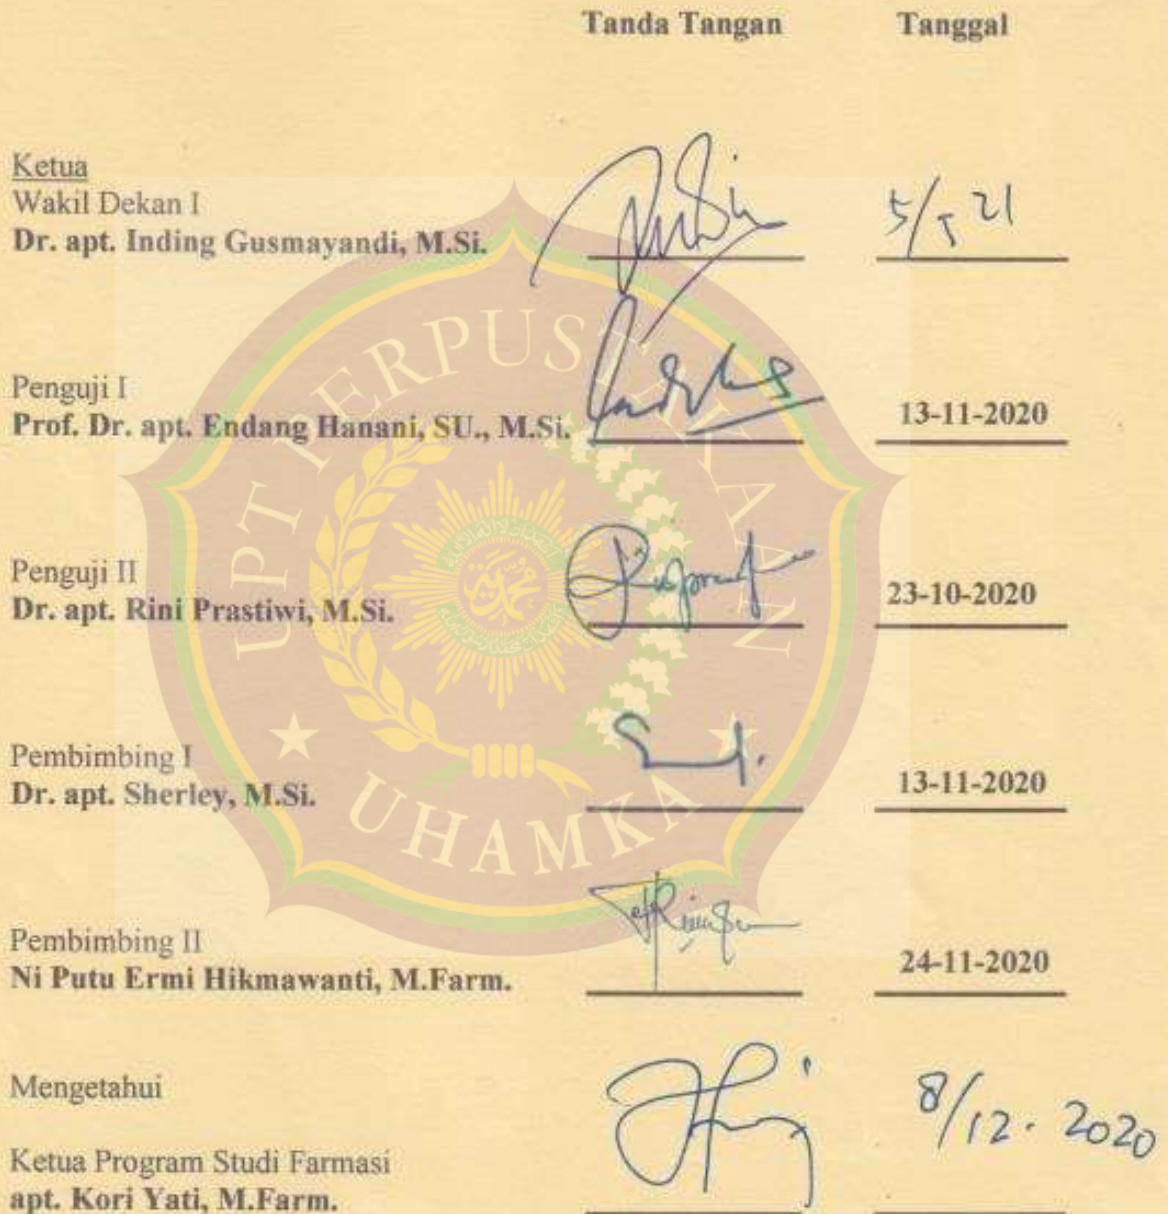 Tanda Tangan Tanggal
Ketua
Wakil Dekan I
Dr. apt. Inding Gusmayandi, M.Si. 5/5 21
Penguji I
Prof. Dr. apt. Endang Hanani, SU., M.Si. 13-11-2020
Penguji II
Dr. apt. Rini Prastiwi, M.Si. 23-10-2020
Pembimbing I
Dr. apt. Sherley, M.Si. 13-11-2020
Pembimbing II
Ni Putu Ermi Hikmawanti, M.Farm. 24-11-2020
Mengetahui
8/12. 2020
Ketua Program Studi Farmasi
apt. Kori Yati, M.Farm.
UPT PERPUSTAKAAN
UHAMKA